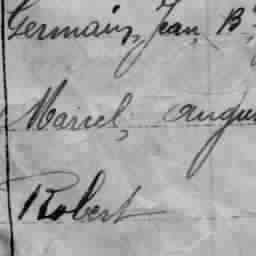 Germain, Jean B
Marcel, Augus
Robert